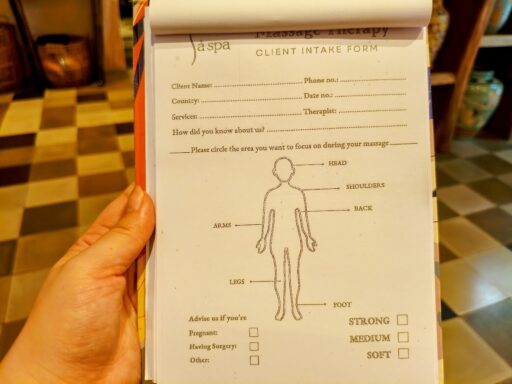 à spa
Massage Therapy
CLIENT INTAKE FORM
Client Name: Phone no.:
Country: Date no.:
Services: Therapist:
How did you know about us?
Please circle the area you want to focus on during your massage
HEAD
SHOULDERS
BACK
ARMS
LEGS
FOOT
Advise us if you're
Pregnant:
Having Surgery:
Other:
STRONG
MEDIUM
SOFT